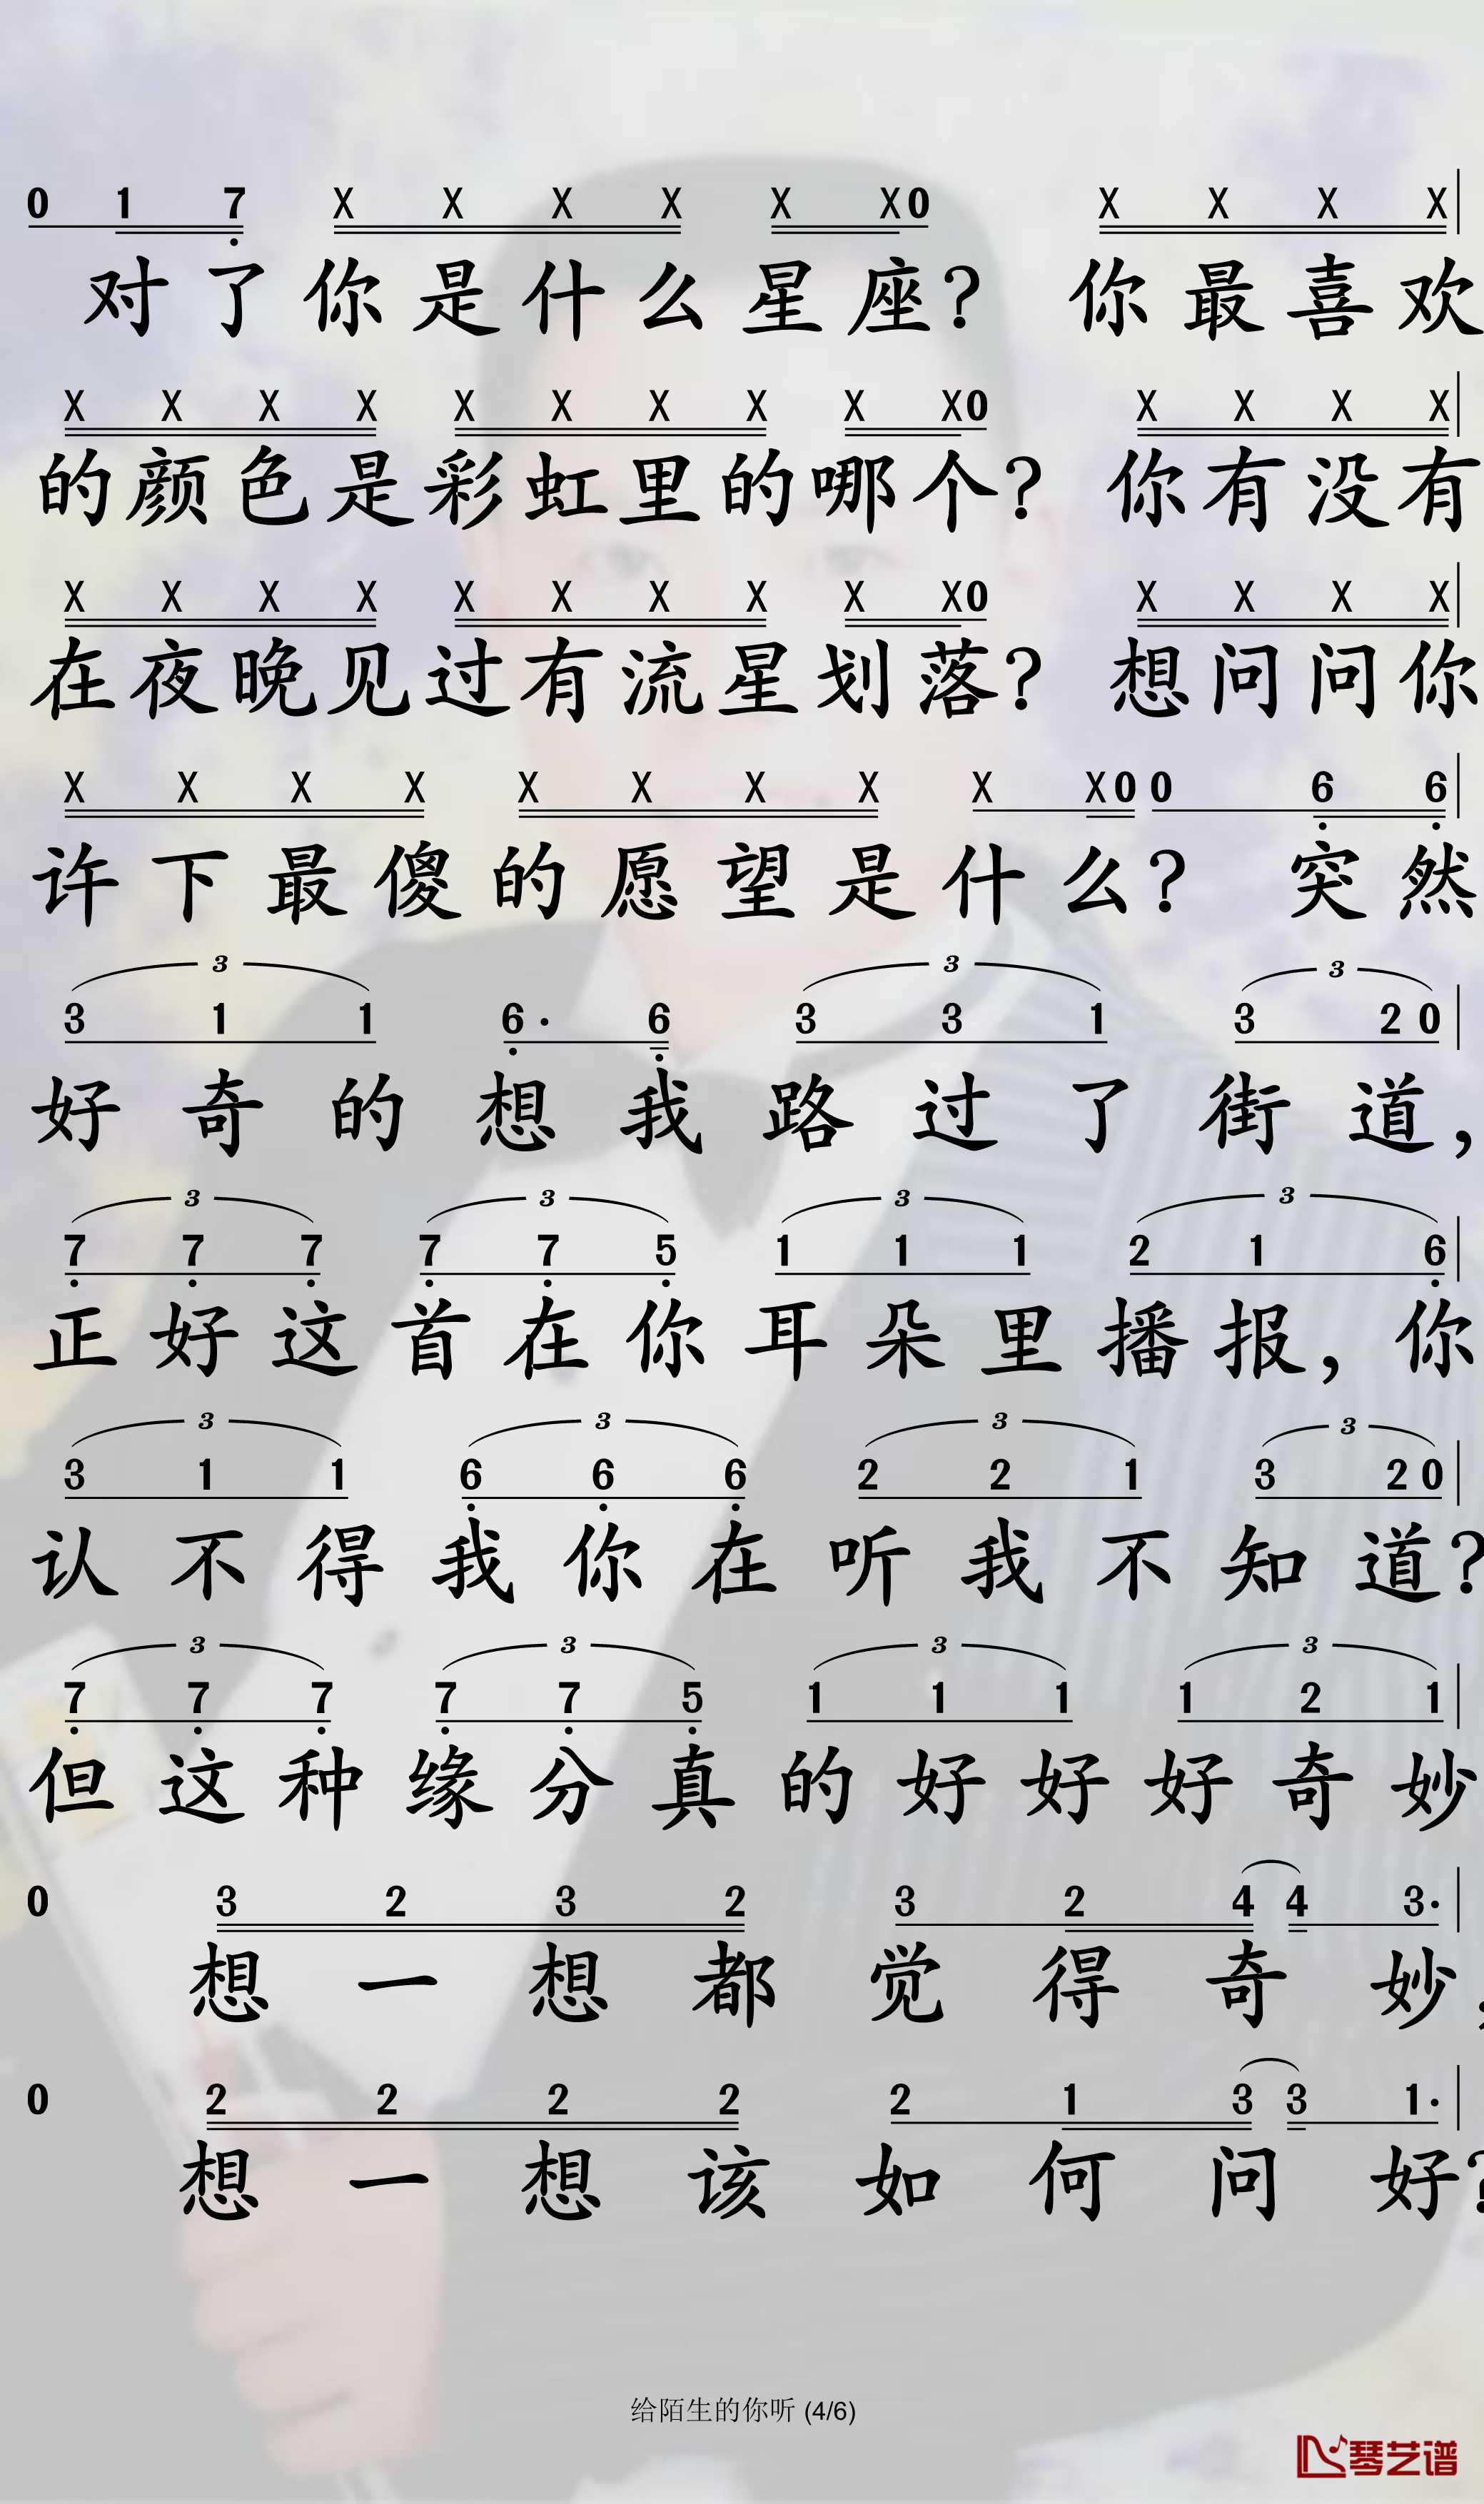 0 1 7 X X X X X X0 X X X X
对了你是什么星座? 你最喜欢
X X X X X X X X X X0 X X X X
的颜色是彩虹里的哪个? 你有没有
X X X X X X X X X X0 X X X X
在夜晚见过有流星划落? 想问问你
X X X X X X X X X X0 0 6 6
许下最傻的愿望是什么? 突然
3 3 3
3 1 1 6· 6 3 3 1 3 2 0
好奇的想我路过了街道,
3 3 3 3
7 7 7 7 7 5 1 1 1 2 1 6
正好这首在你耳朵里播报, 你
3 3 3 3
3 1 1 6 6 6 2 2 1 3 2 0
认不得我你在听我不知道?
3 3 3 3
7 7 7 7 7 5 1 1 1 1 2 1
但这种缘分真的好好好奇妙
0 3 2 3 2 3 2 4 4 3·
想一想都觉得奇妙,
0 2 2 2 2 2 1 3 3 1·
想一想该如何问好?
给陌生的你听 (4/6)
琴艺谱